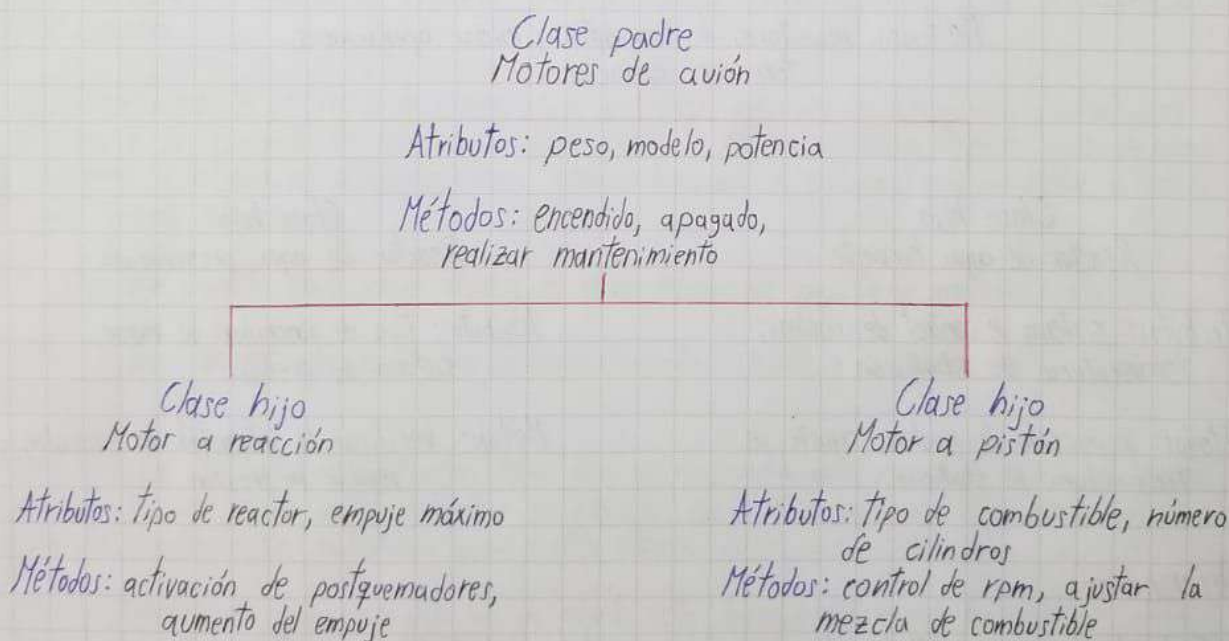 Clase padre
Motores de avión
Atributos: peso, modelo, potencia
Métodos: encendido, apagado,
realizar mantenimiento
Clase hijo
Motor a reacción
Atributos: tipo de reactor, empuje máximo
Métodos: activación de postquemadores,
aumento del empuje
Clase hijo
Motor a pistón
Atributos: tipo de combustible, número
de cilindros
Métodos: control de rpm, ajustar la
mezcla de combustible